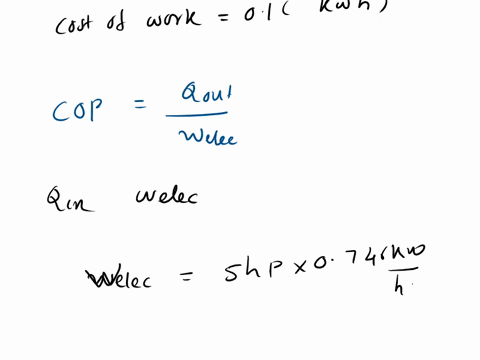 cost of work = 0.1 ( kwh)
COP = Qout / Welec
Qin welec
Welec = 5hp x 0.746 kw / h